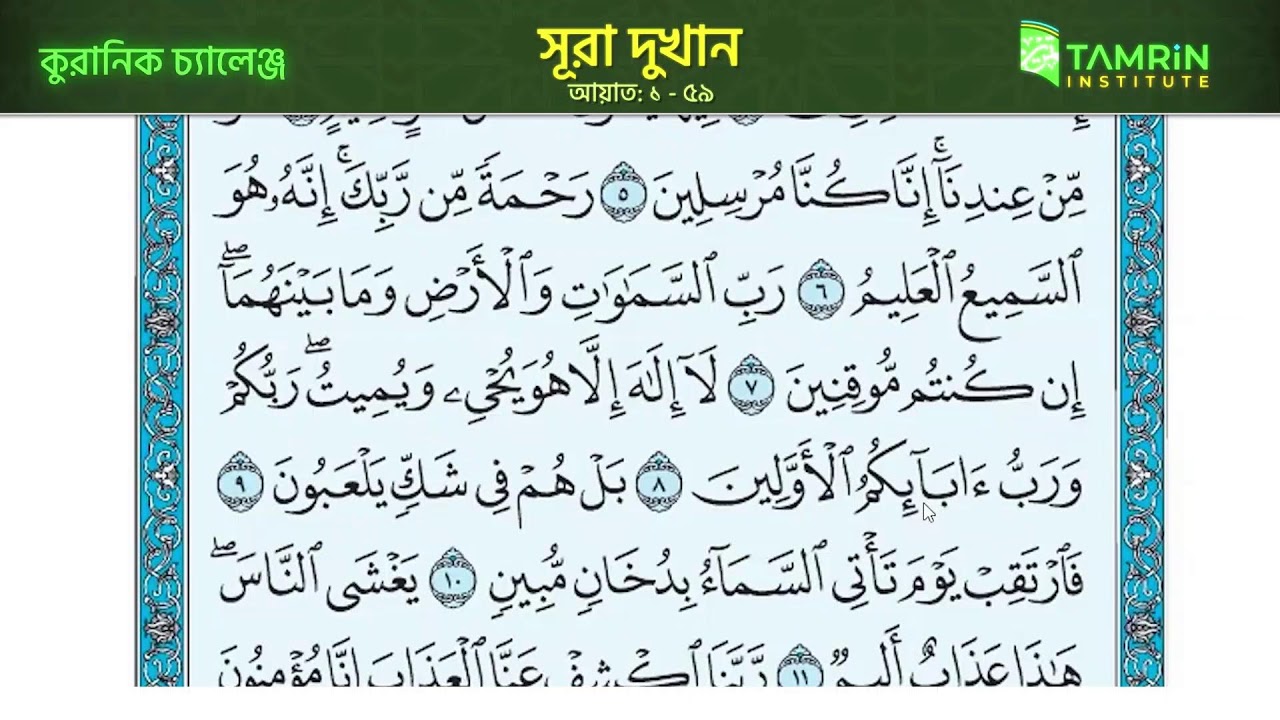 কুরানিক চ্যালেঞ্জ
সূরা দুখান
আয়াত: ১ - ৫৯
TAMRiN
INSTITUTE
مِّنْ عِندِنَآ ۚ إِنَّا كُنَّا مُرْسِلِينَ ٥ رَحْمَةً مِّن رَّبِّكَ ۚ إِنَّهُۥ هُوَ
ٱلسَّمِيعُ ٱلْعَلِيمُ ٦ رَبِّ ٱلسَّمَٰوَٰتِ وَٱلْأَرْضِ وَمَا بَيْنَهُمَآ ۖ
إِن كُنتُم مُّوقِنِينَ ٧ لَآ إِلَٰهَ إِلَّا هُوَ يُحْىِۦ وَيُمِيتُ ۖ رَبُّكُمْ
وَرَبُّ ءَابَآئِكُمُ ٱلْأَوَّلِينَ ٨ بَلْ هُمْ فِى شَكٍّ يَلْعَبُونَ ٩
فَٱرْتَقِبْ يَوْمَ تَأْتِى ٱلسَّمَآءُ بِدُخَانٍ مُّبِينٍ ١٠ يَغْشَى ٱلنَّاسَ ۖ
هَٰذَا عَذَابٌ أَلِيمٌ ١١ رَّبَّنَا ٱكْشِفْ عَنَّا ٱلْعَذَابَ إِنَّا مُؤْمِنُونَ